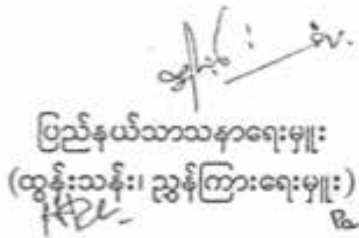 ပြည်နယ်သာသနာရေးမှူး
(ထွန်းသန်း၊ ညွှန်ကြားရေးမှူး)